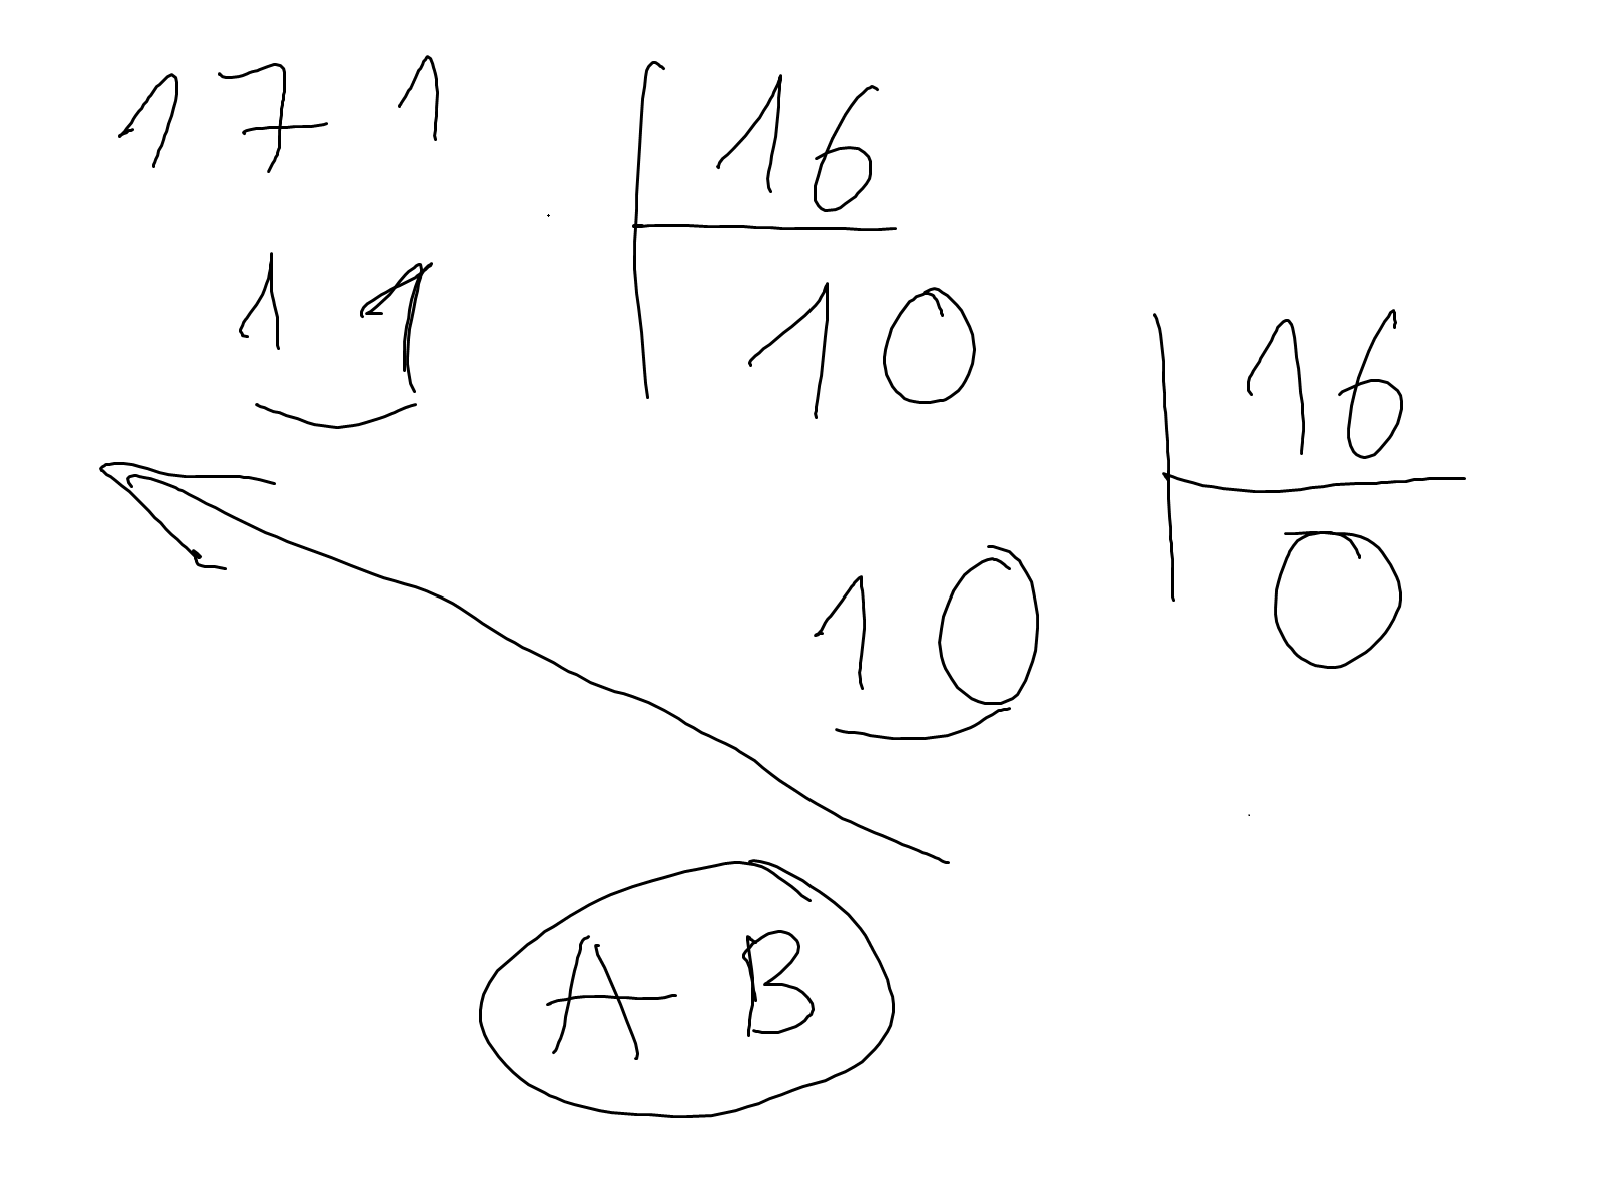 171 16
11 10 16
10 0
AB